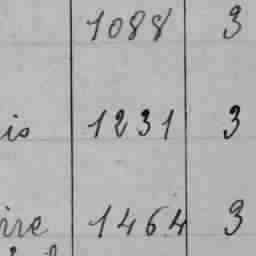 1088 3
is 1231 3
1464 3